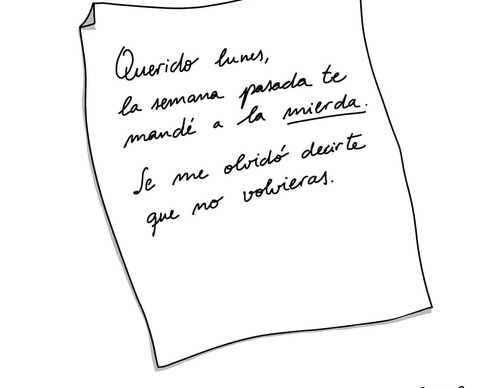 Querido lunes,
la semana pasada te
mandé a la mierda.
Se me olvidó decirte
que no volvieras.